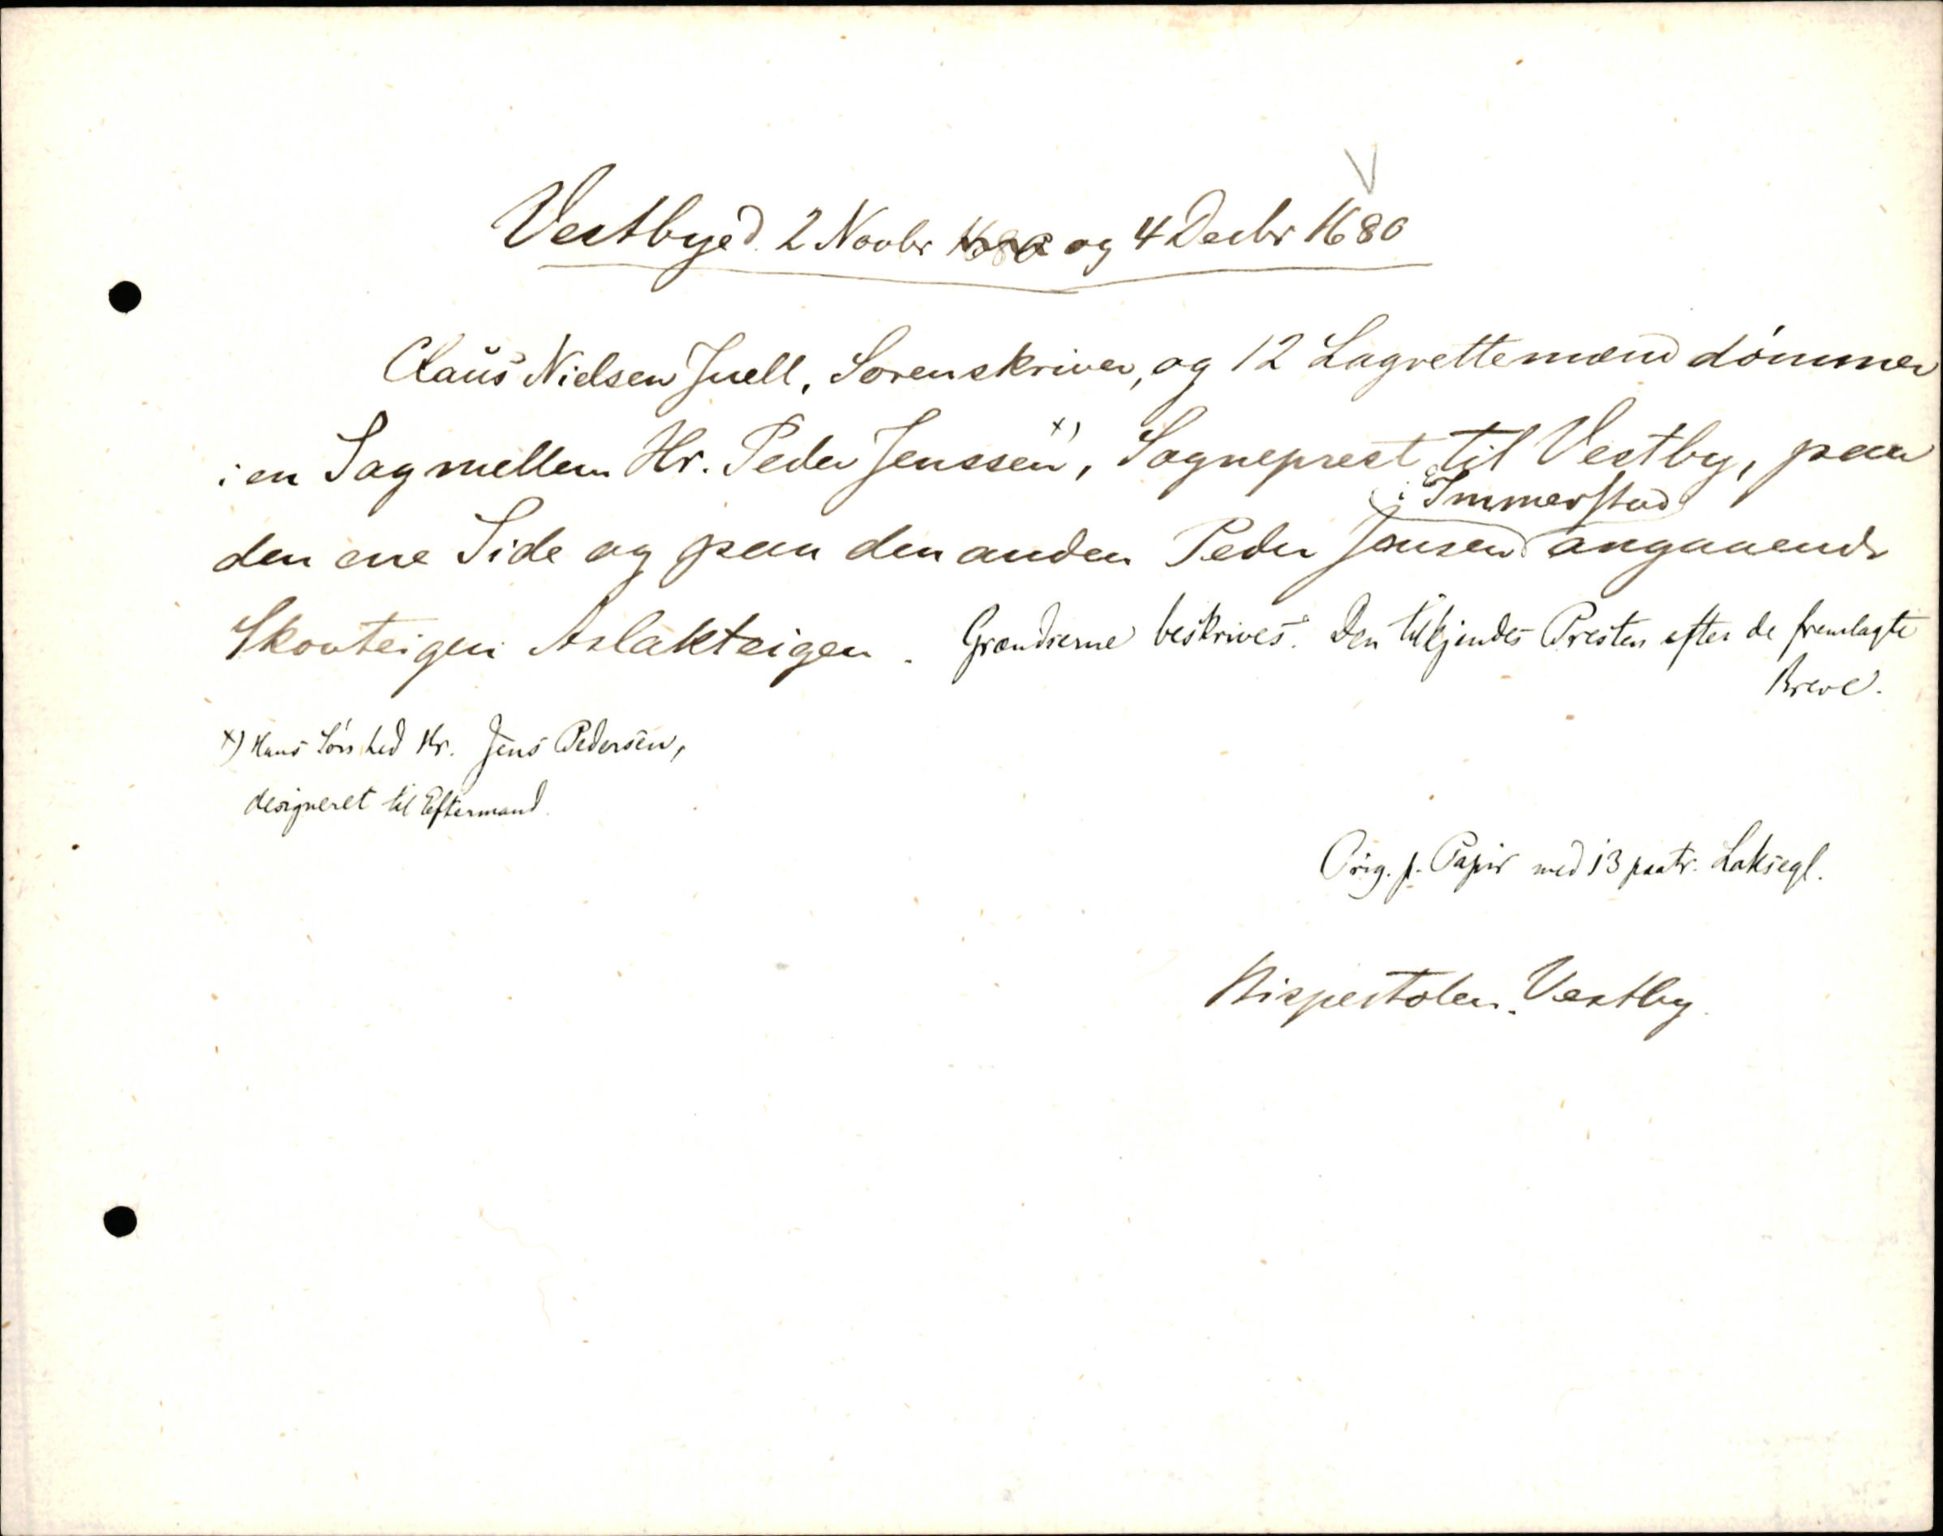 Vestby d. 2 Novbr 1680 og 4 Decbr 1680
Claus Nielsen Juell, Sorenskriver, og 12 Lagrettemænd dømmer
i en Sag mellem Hr. Peder Jenssen x), Sogneprest til Vestby, paa
i Immerstad
den ene Side og paa den anden Peder Jonsen angaaende
Skovteigen Aslakteigen. Grændserne beskrives. Den tilkjendes Presten efter de fremlagte
Breve.
x) Hans Søn hed Hr. Jens Pedersen,
designeret til Eftermand.
Orig. p. Papir med 13 paatr. Laksegl.
Bispestolen. Vestby.